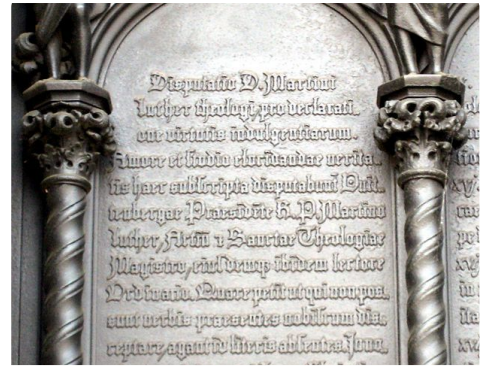 Disputatio D. Martini
Luther theologi, pro declarati-
one virtutis indulgentiarum.
Amore et studio elucidandae verita-
tis haec subscripta disputabunt Vuit-
tenbergae Praesidēte R. P. Martino
Luther, Artiū & Sanctae Theologiae
Magistro, eiusdemq; ibidem lectore
Ordinario. Quare petit ut qui non pos-
sunt verbis praesentes nobiscum dis-
ceptare, agant id literis absentes. Inno-